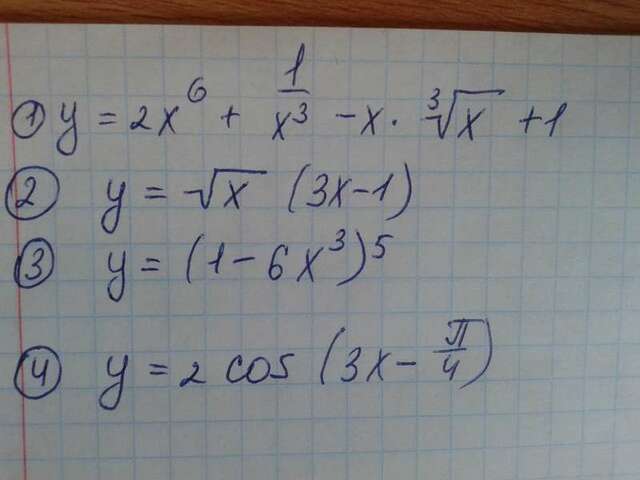 ① y = 2x⁶ + 1/x³ - x · ∛x + 1
② y = √x (3x-1)
③ y = (1 - 6x³)⁵
④ y = 2 cos (3x - π/4)